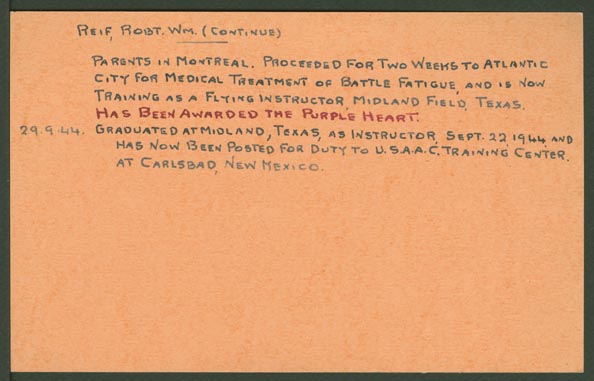 REIF, ROBT. WM. (CONTINUE)
PARENTS IN MONTREAL. PROCEEDED FOR TWO WEEKS TO ATLANTIC
CITY FOR MEDICAL TREATMENT OF BATTLE FATIGUE, AND IS NOW
TRAINING AS A FLYING INSTRUCTOR, MIDLAND FIELD, TEXAS.
HAS BEEN AWARDED THE PURPLE HEART.
29.9.44. GRADUATED AT MIDLAND, TEXAS, AS INSTRUCTOR, SEPT. 22, 1944 AND
HAS NOW BEEN POSTED FOR DUTY TO U.S.A.A.C. TRAINING CENTER.
AT CARLSBAD, NEW MEXICO.